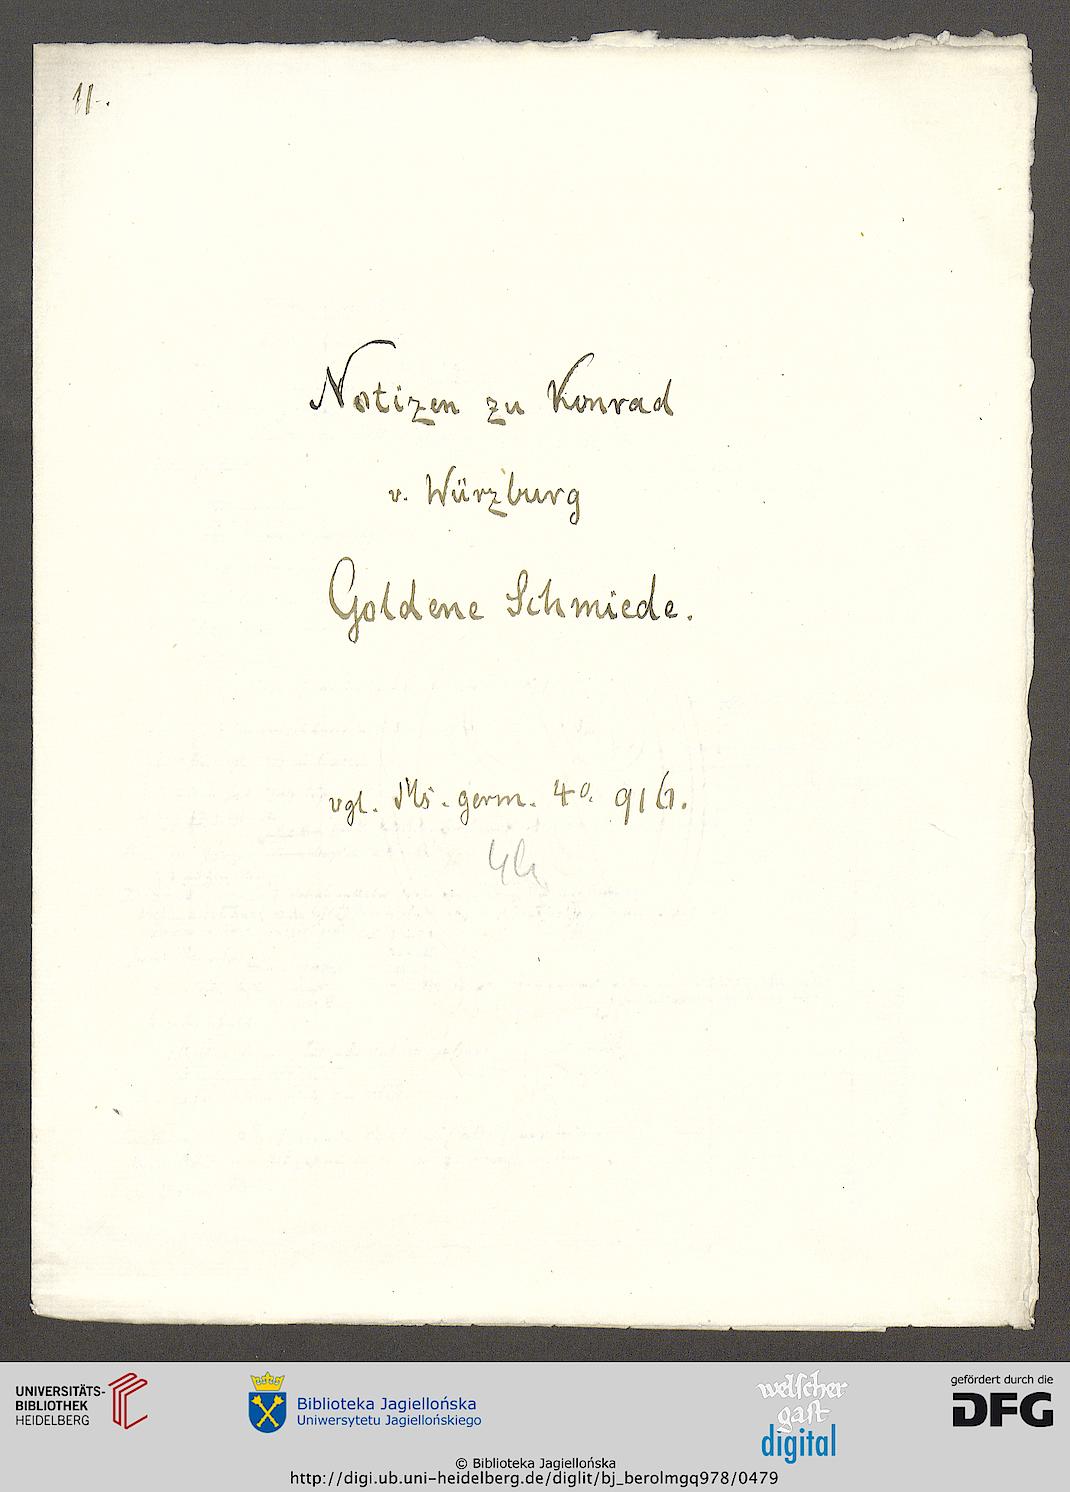 11.
Notizen zu Konrad
v. Würzburg
Goldene Schmiede.
vgl. Ms. germ. 4o. 916.
UNIVERSITÄTS-
BIBLIOTHEK
HEIDELBERG
Biblioteka Jagiellońska
Uniwersytetu Jagiellońskiego
welscher
gast
digital
gefördert durch die
DFG
© Biblioteka Jagiellońska
http://digi.ub.uni-heidelberg.de/diglit/bj_berolmgq978/0479